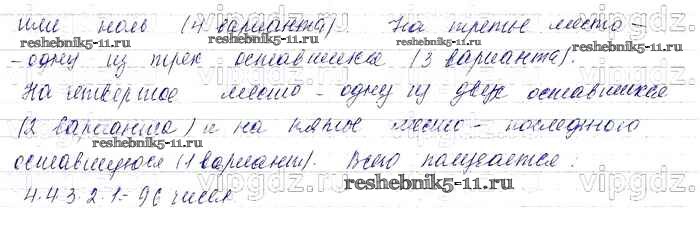 или ноль (4 варианта). На третье место -
- одну из трех оставшихся (3 варианта).
На четвертое место - одну из двух оставшихся
(2 варианта) и на пятое место - последнюю
оставшуюся (1 вариант). Всего получается:
4.4.3.2.1=96 чисел
reshebnik5-11.ru
reshebnik5-11.ru
reshebnik5-11.ru
reshebnik5-11.ru
vipgdz.ru